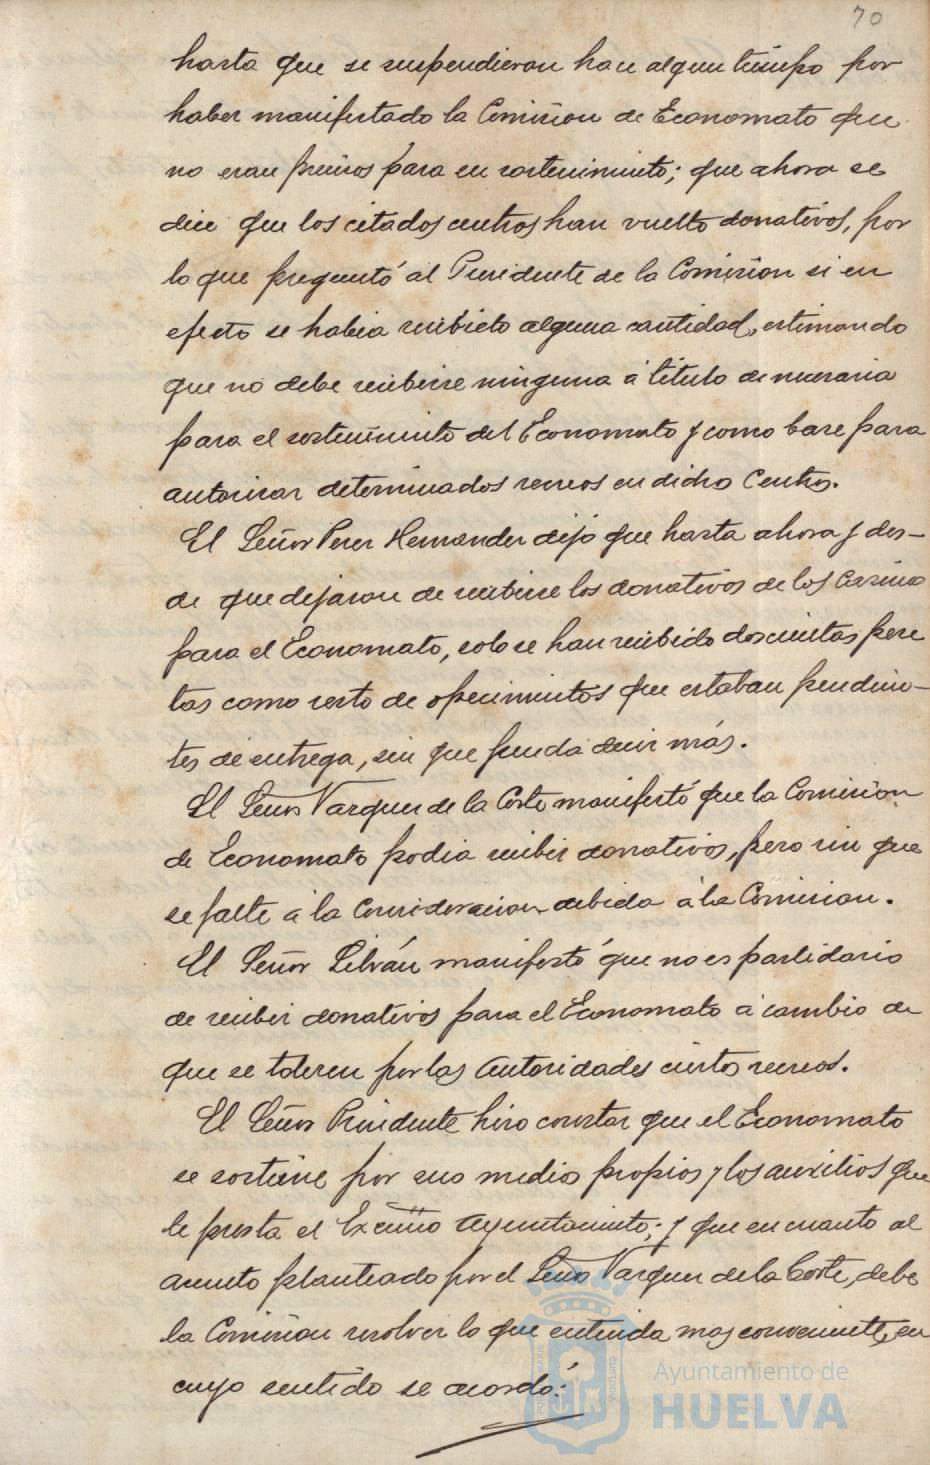 70
hasta que se suspendieron hace algun tiempo por
haber manifestado la Comision de Economato que
no eran precisos para su sostenimiento; que ahora se
dice que los citados centros han vuelto donativos, por
lo que preguntó al Presidente de la Comision si en
efecto se habia recibido alguna cantidad, estimando
que no debe recibirse ninguna á título de necesaria
para el sostenimiento del Economato y como base para
autorizar determinados recreos en dicho Centro.
El Señor Perez Hernandez dijo que hasta ahora y des-
de que dejaron de recibirse los donativos de los Casinos
para el Economato, solo se han recibido doscientas pese
tas como resto de ofrecimientos que estaban pendien-
tes de entrega, sin que pueda decir más.
El Señor Vazquez de la Corte manifestó que la Comision
de Economato podia recibir donativos, pero sin que
se falte á la Consideracion debida á la Comision.
El Señor Librán manifestó que no es partidario
de recibir donativos para el Economato á cambio de
que se toleren por las Autoridades ciertos recreos.
El Señor Presidente hizo constar que el Economato
se sostiene por sus medios propios y los auxilios que
le presta el Excmo Ayuntamiento; y que en cuanto al
asunto planteado por el Señor Vazquez de la Corte, debe
la Comision resolver lo que entienda mas conveniente, en
cuyo sentido se acordó:
Ayuntamiento de
HUELVA